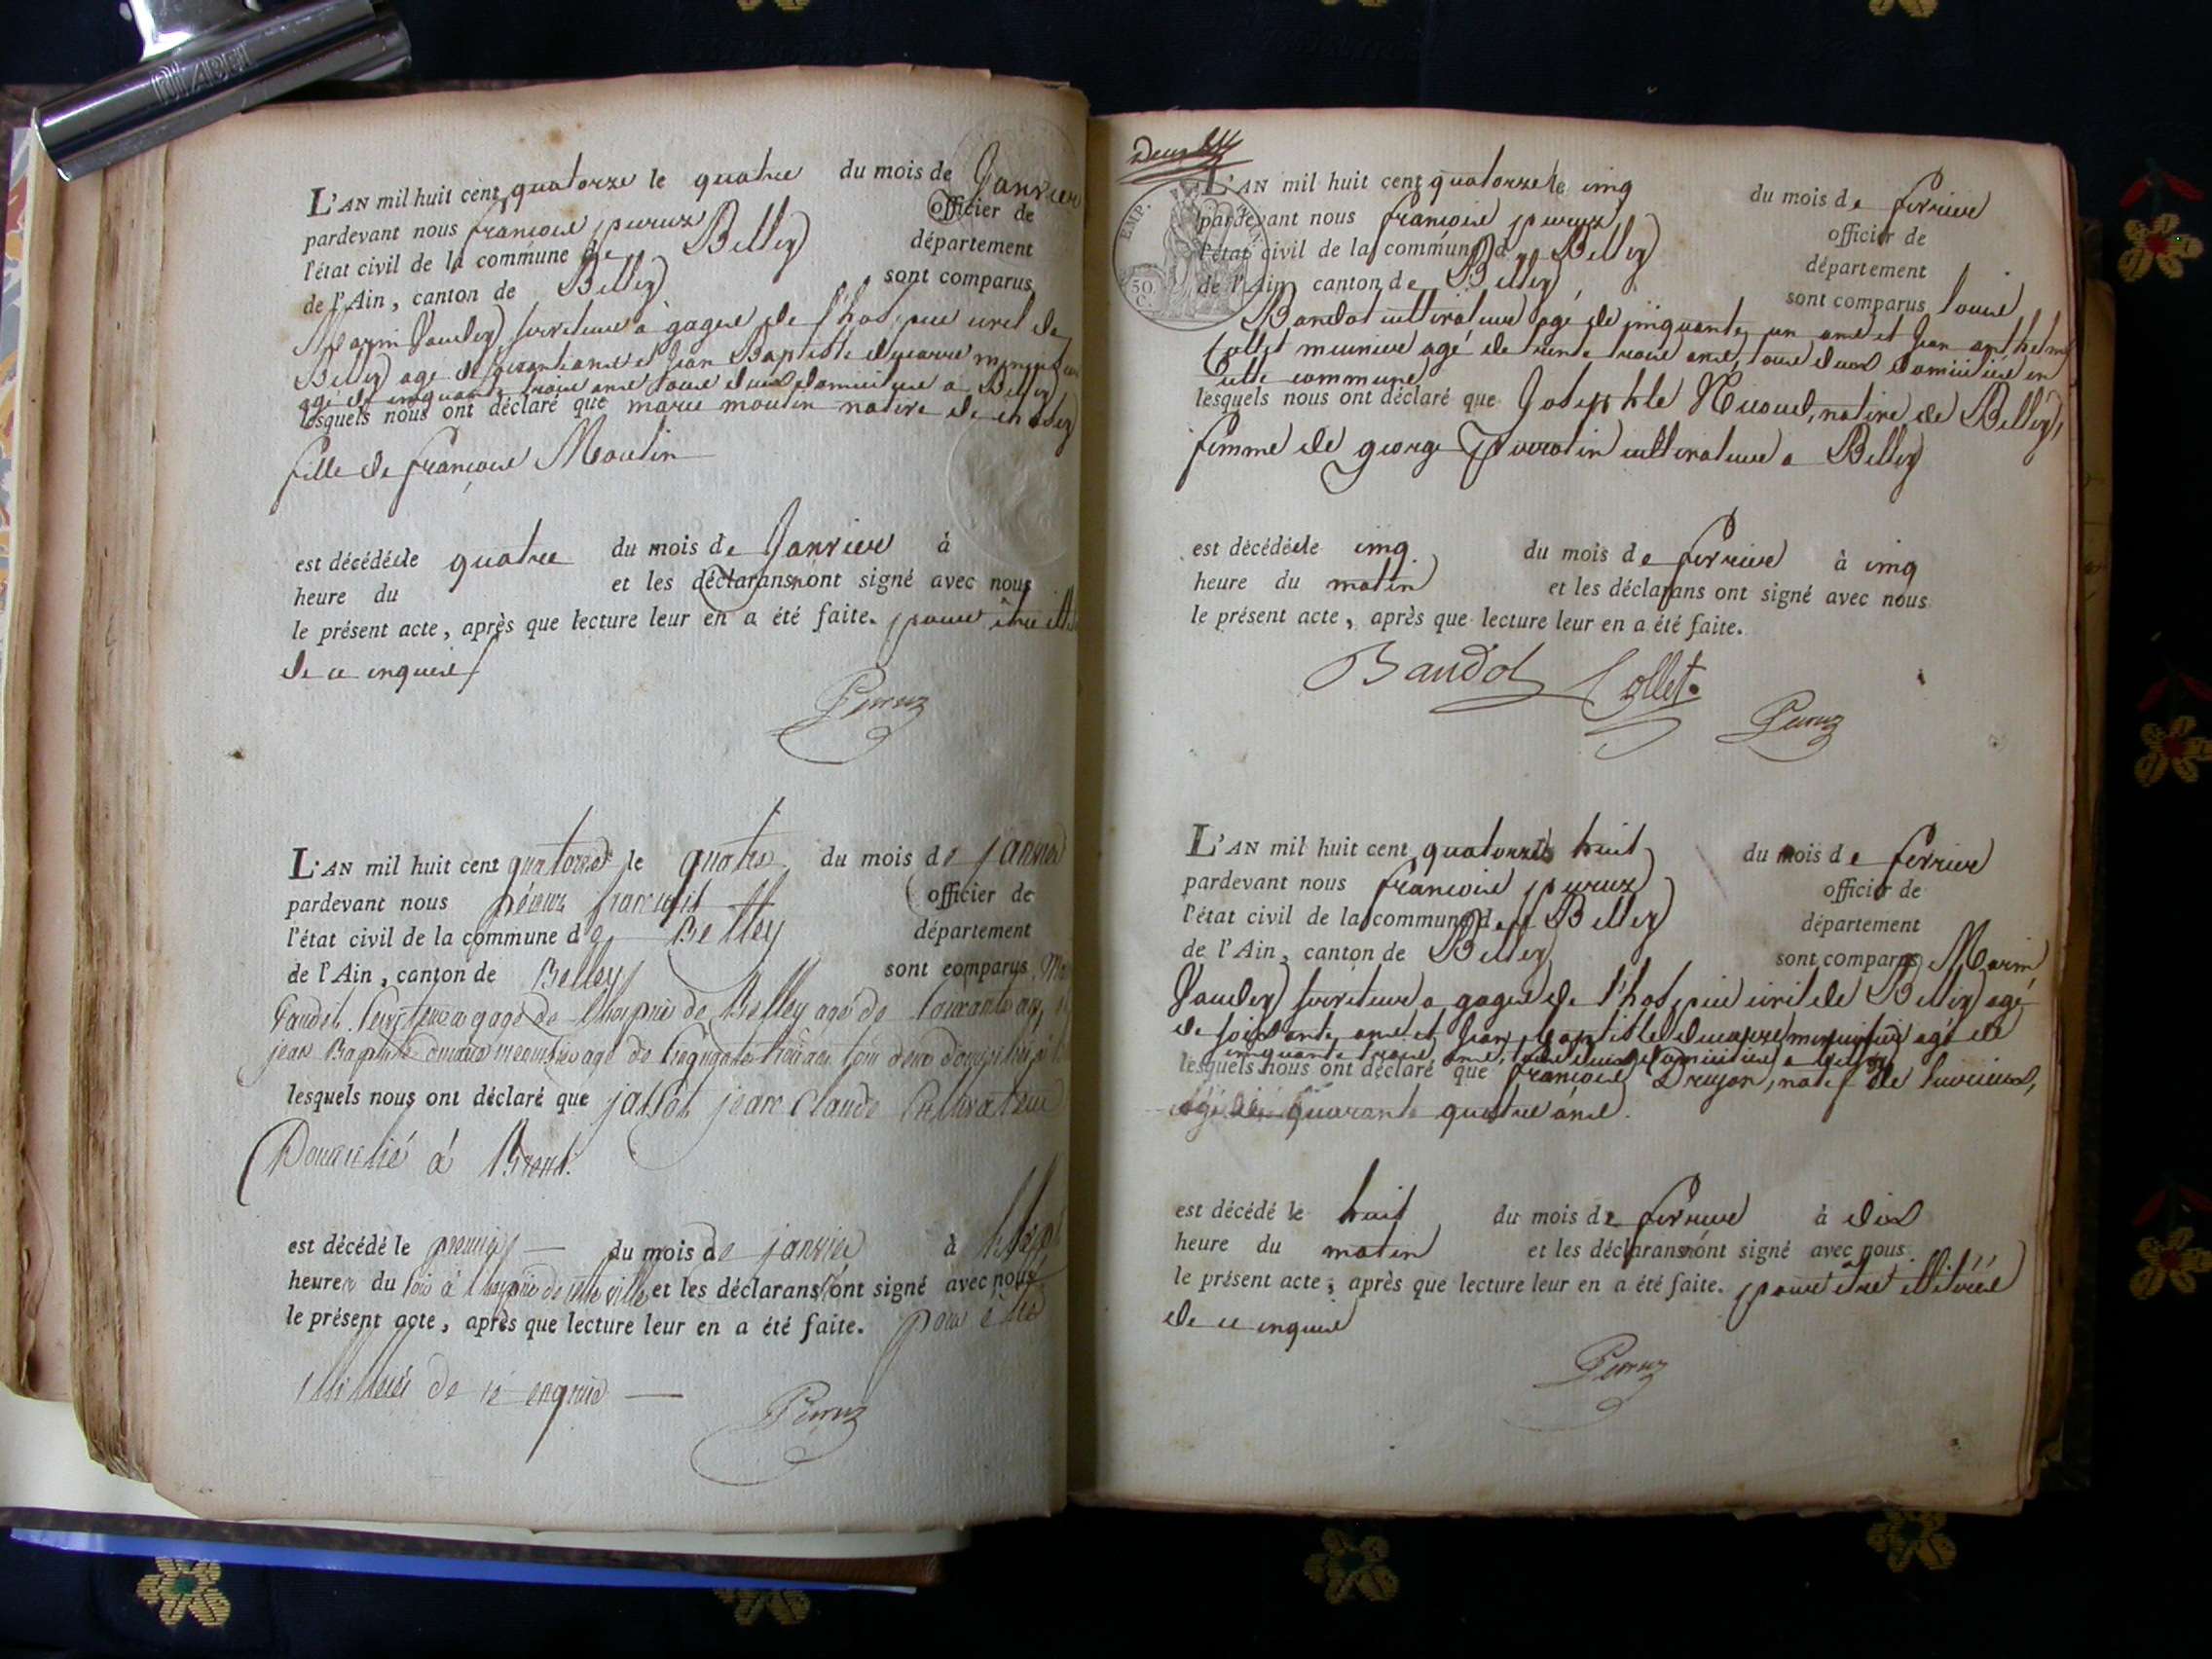 DIABEL
L'AN mil huit cent quatorze le quatre du mois de Janvier
pardevant nous françois peruz officier de
l'état civil de la commune de Belley département
de l'Ain, canton de Belley sont comparus
Marin Vauden serviteur à gages de l'hospice civil de
Belley agé de soixante ans et Jean Baptiste ducarre menuisier
agé de cinquante trois ans tous deux domiciliés a Belley
lesquels nous ont déclaré que marie moulin native de
fille de françois Moulin
est décédée le quatre du mois de Janvier à
heure du et les déclarans n'ont signé avec nous
le présent acte, après que lecture leur en a été faite. pour être
de ce enquis
Peruz
L'AN mil huit cent quatorze le quatre du mois de janvier
pardevant nous péruz françois officier de
l'état civil de la commune de Belley département
de l'Ain, canton de Belley sont comparus
serviteur a gage de l'hospice de Belley agé de soixante ans
jean Baptiste menuisier agé de cinquante trois ans tous deux
lesquels nous ont déclaré que jean Claude Cultivateur
Domicilié à
est décédé le premier du mois de janvier à
heure du soir à l'hospice de cette ville et les déclarans n'ont signé avec nous
le présent acte, après que lecture leur en a été faite. pour être
de ce enquis
Peruz
EMP.
50
C.
L'AN mil huit cent quatorze le cinq du mois de fevrier
pardevant nous françois peruz officier de
l'état civil de la commune de Belley département
de l'Ain, canton de Belley sont comparus louis
Baudot cultivateur agé de cinquante un ans et Jean anthelme
Collet meunier agé de trente trois ans, tous deux domiciliés en
Cette commune
lesquels nous ont déclaré que Josephte native de Belley,
femme de george cultivateur a Belley
est décédée le cinq du mois de fevrier à cinq
heure du matin et les déclarans ont signé avec nous
le présent acte, après que lecture leur en a été faite.
Baudot Collet
Peruz
L'AN mil huit cent quatorze le huit du mois de fevrier
pardevant nous françois peruz officier de
l'état civil de la commune de Belley département
de l'Ain, canton de Belley sont comparus Marin
Vauden serviteur a gages de l'hospice civil de Belley agé
de soixante ans et Jean baptiste ducarre menuisier agé de
cinquante trois ans, tous deux domiciliés a Belley
lesquels nous ont déclaré que françois Drujon, natif de
agé de quarante quatre ans.
est décédé le huit du mois de fevrier à dix
heure du matin et les déclarans n'ont signé avec nous
le présent acte, après que lecture leur en a été faite. pour être illitérés
de ce enquis
Peruz